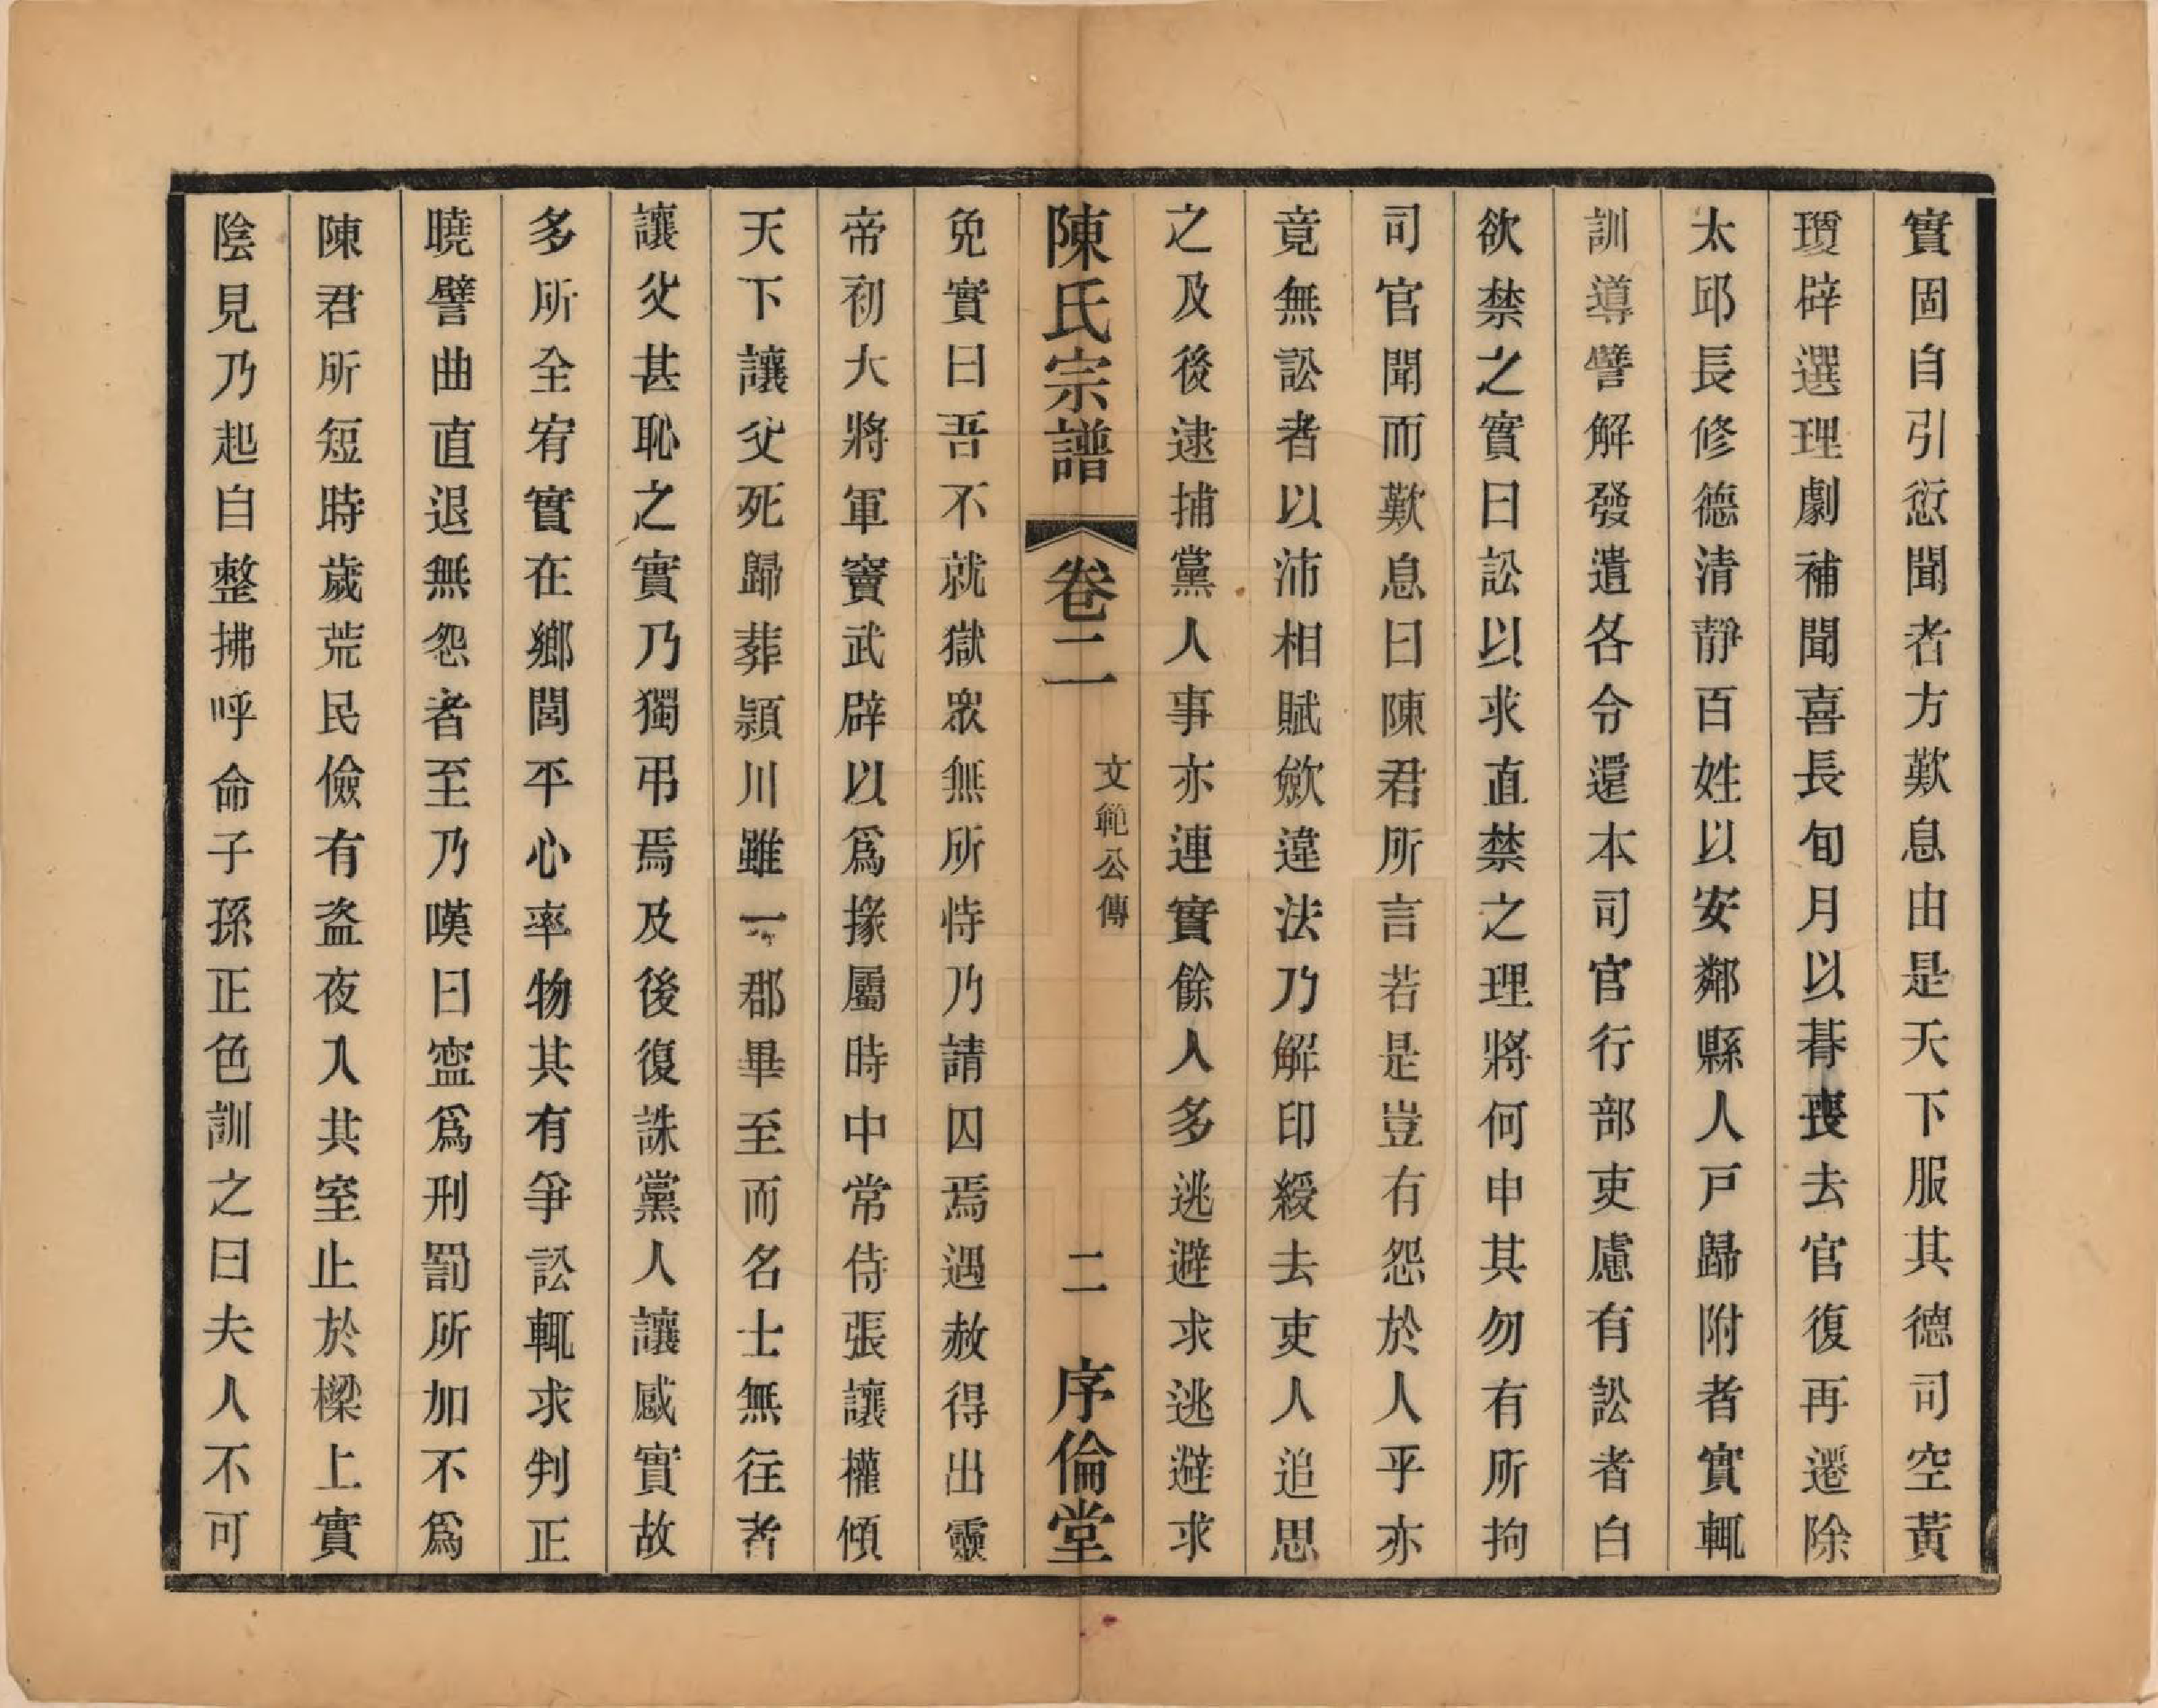 實固自引愆聞者方歎息由是天下服其德司空黃
瓊辟選理劇補聞喜長旬月以朞喪去官復再遷除
太邱長修德清靜百姓以安鄰縣人戸歸附者實輒
訓導譬解發遣各令還本司官行部吏慮有訟者白
欲禁之實曰訟以求直禁之理將何申其勿有所拘
司官聞而歎息曰陳君所言若是豈有怨於人乎亦
竟無訟者以沛相賦歛違法乃解印綬去吏人追思
之及後逮捕黨人事亦連實餘人多逃避求逃避求
陳氏宗譜 卷二 文範公傳 二 序倫堂
免實曰吾不就獄眾無所恃乃請囚焉遇赦得出靈
帝初大將軍竇武辟以爲掾屬時中常侍張讓權傾
天下讓父死歸葬潁川雖一郡畢至而名士無往者
讓父甚恥之實乃獨弔焉及後復誅黨人讓感實故
多所全宥實在鄉閭平心率物其有爭訟輒求判正
曉譬曲直退無怨者至乃嘆曰寍爲刑罰所加不爲
陳君所短時歲荒民儉有盜夜入其室止於樑上實
陰見乃起自整拂呼命子孫正色訓之曰夫人不可